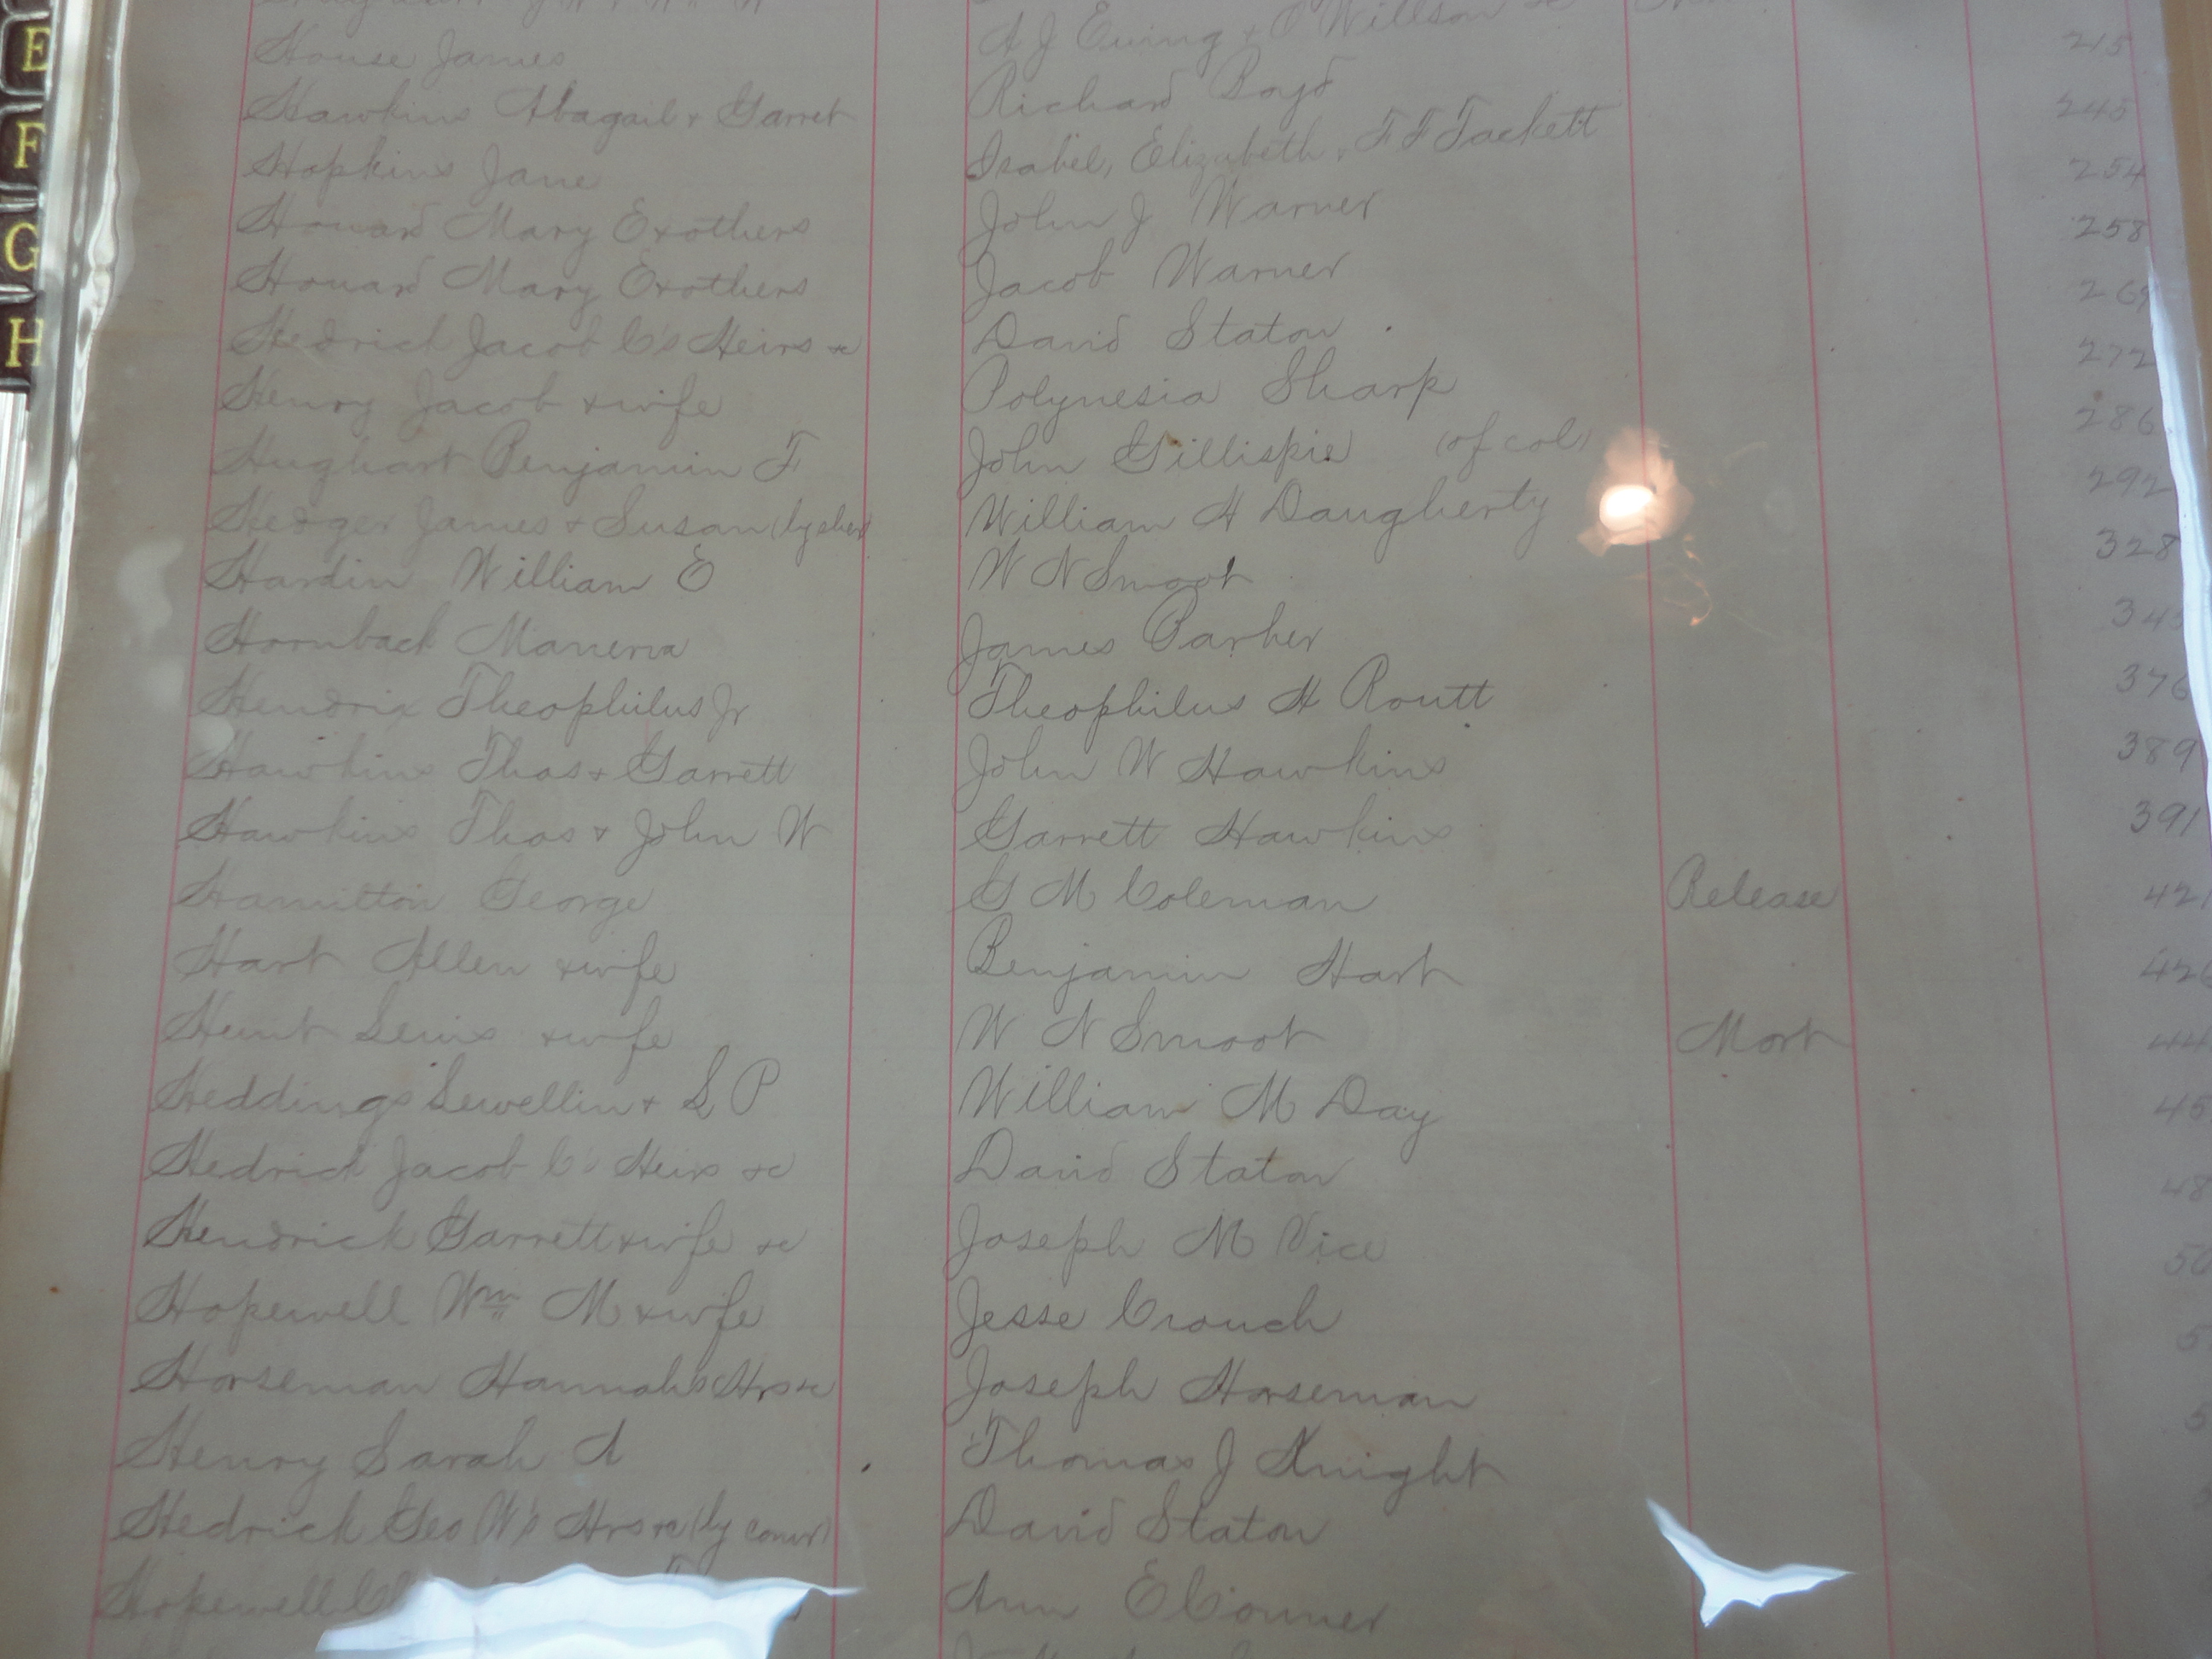 E
F
G
H
A J Ewing + Willson
House James 215
Hawkins Abagail + Garret Richard Boyd 245
Hopkins Jane Isabel, Elizabeth, F F Tackett 254
Howard Mary Exothers John J Warner 258
Howard Mary Exothers Jacob Warner 269
Hedrick Jacob C's Heirs &c David Staton 272
Henry Jacob & wife Polynesia Sharp 286
Hughart Benjamin F John Gillispie (of col) 292
Hedger James & Susan William H Daugherty 328
Hardin William E W N Smoot 345
Hornback James Parker 376
Hendrix Theophilus Jr Theophilus H Routt 389
Hawkins Thos & Garrett John W Hawkins 391
Hawkins Thos & John W Garrett Hawkins
Hamilton George G M Coleman Release 421
Hart Allen & wife Benjamin Hart 426
Hunt Lewis & wife W N Smoot Mort 44
Heddings Lewellin & L P William M Day 45
Hedrick Jacob C's Heirs &c David Staton 48
Hendrick Garrett & wife &c Joseph M Vice 50
Hopewell Wm M & wife Jesse Crouch 5
Horseman Hannah's Hrs &c Joseph Horseman 5
Henry Sarah A Thomas J Knight
Hedrick Geo W's Hrs &c (by comr) David Staton
Hopewell Ann E Conner